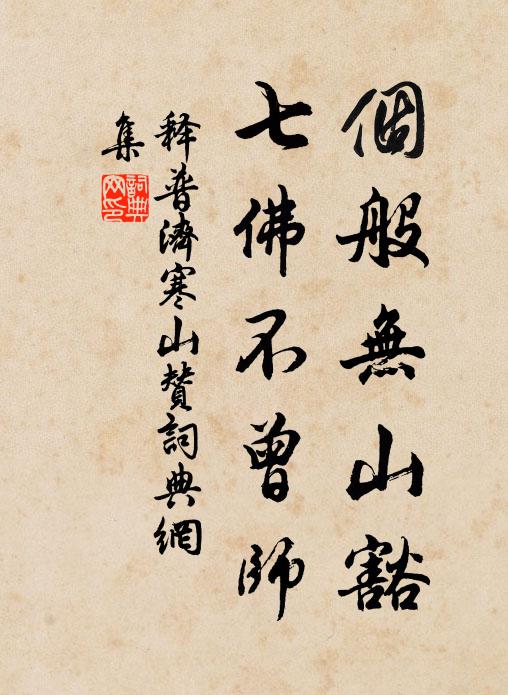 個般無山豁
七佛不曾師
释普濟寒山贊詞典網
集
詞典網印